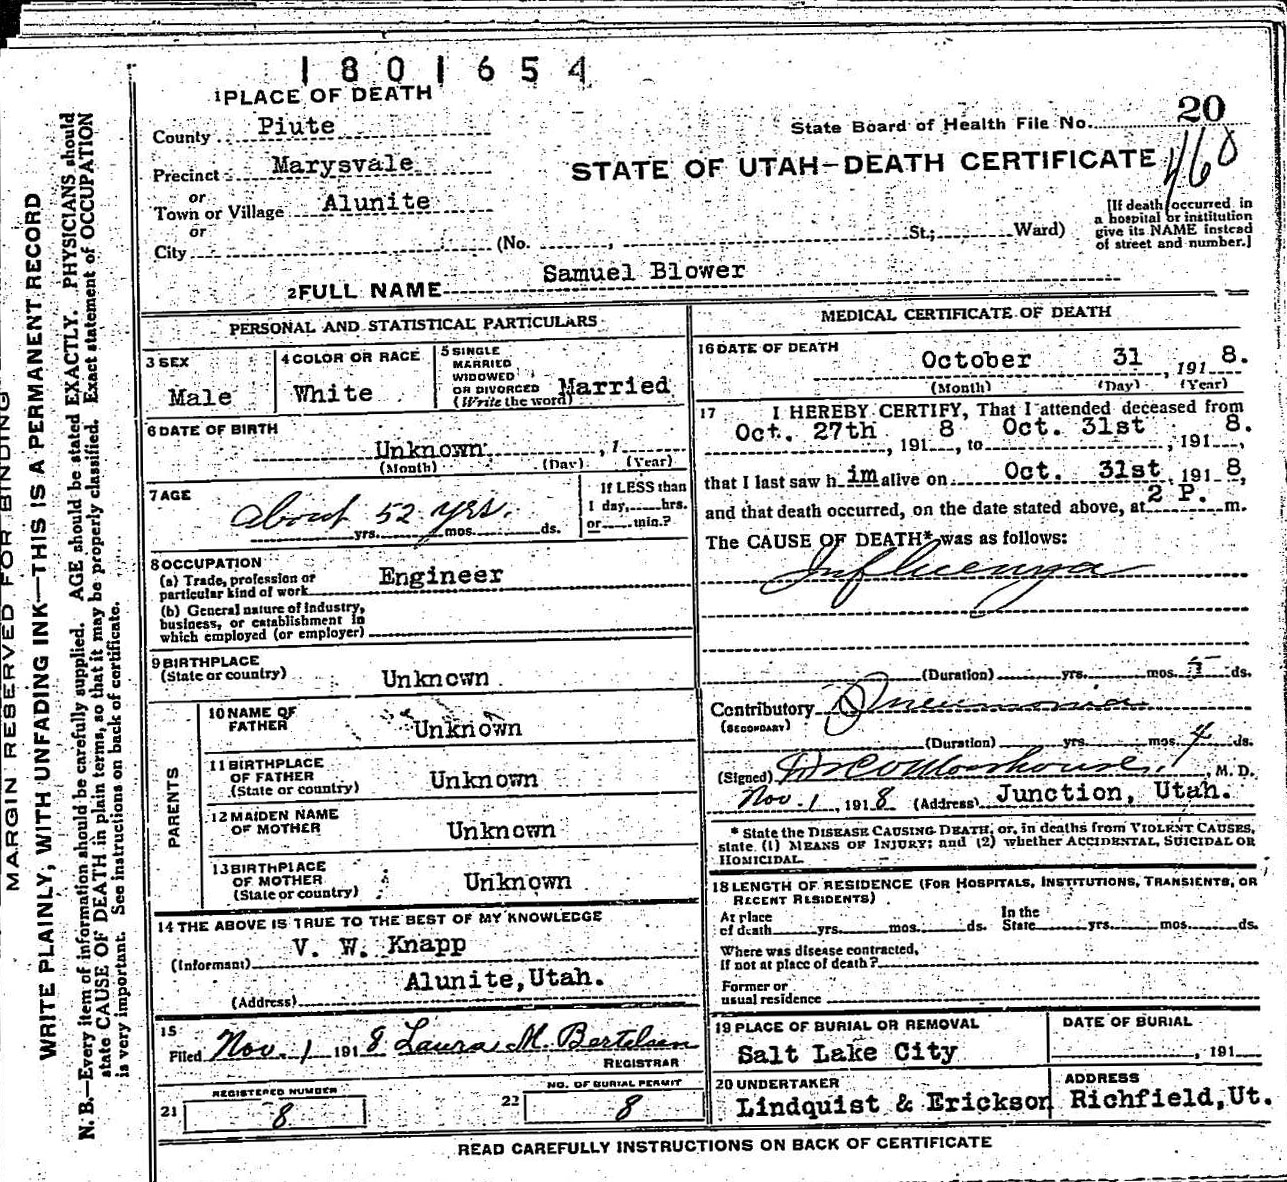 1801654
1 PLACE OF DEATH
County Piute
State Board of Health File No. 20
460
Precinct Marysvale
STATE OF UTAH—DEATH CERTIFICATE
or
Town or Village Alunite
or
City (No. , St.; Ward)
[If death occurred in
a hospital or institution
give its NAME instead
of street and number.]
2 FULL NAME Samuel Blower
PERSONAL AND STATISTICAL PARTICULARS
3 SEX
Male
4 COLOR OR RACE
White
5 SINGLE
MARRIED
WIDOWED
OR DIVORCED Married
(Write the word)
6 DATE OF BIRTH
Unknown , 1
(Month) (Day) (Year)
7 AGE
About 52 yrs.
yrs. mos. ds.
If LESS than
1 day, hrs.
or min.?
8 OCCUPATION
(a) Trade, profession or
particular kind of work Engineer
(b) General nature of industry,
business, or establishment in
which employed (or employer)
9 BIRTHPLACE
(State or country) Unknown
PARENTS
10 NAME OF
FATHER Unknown
11 BIRTHPLACE
OF FATHER
(State or country) Unknown
12 MAIDEN NAME
OF MOTHER Unknown
13 BIRTHPLACE
OF MOTHER
(State or country) Unknown
14 THE ABOVE IS TRUE TO THE BEST OF MY KNOWLEDGE
(Informant) V. W. Knapp
(Address) Alunite, Utah.
15
Filed Nov. 1 1918 Laura M. Bertelsen
REGISTRAR
REGISTERED NUMBER
21 8
NO. OF BURIAL PERMIT
22 8
MEDICAL CERTIFICATE OF DEATH
16 DATE OF DEATH
October 31, 1918.
(Month) (Day) (Year)
17 I HEREBY CERTIFY, That I attended deceased from
Oct. 27th, 1918 to Oct. 31st, 1918.,
that I last saw him alive on Oct. 31st 1918,
and that death occurred, on the date stated above, at 2 P. m.
The CAUSE OF DEATH* was as follows:
Influenza
(Duration) yrs. mos. 5 ds.
Contributory Pneumonia
(SECONDARY)
(Duration) yrs. mos. 4 ds.
(Signed) , M. D.
Nov. 1, 1918 (Address) Junction, Utah.
* State the DISEASE CAUSING DEATH, or, in deaths from VIOLENT CAUSES,
state (1) MEANS OF INJURY; and (2) whether ACCIDENTAL, SUICIDAL OR
HOMICIDAL.
18 LENGTH OF RESIDENCE (FOR HOSPITALS, INSTITUTIONS, TRANSIENTS, OR
RECENT RESIDENTS)
At place
of death yrs. mos. ds. In the
State yrs. mos. ds.
Where was disease contracted,
if not at place of death?
Former or
usual residence
19 PLACE OF BURIAL OR REMOVAL
Salt Lake City
DATE OF BURIAL
, 191
20 UNDERTAKER
Lindquist & Erickson
ADDRESS
Richfield, Ut.
READ CAREFULLY INSTRUCTIONS ON BACK OF CERTIFICATE
MARGIN RESERVED FOR BINDING
WRITE PLAINLY, WITH UNFADING INK—THIS IS A PERMANENT RECORD
N. B.—Every item of information should be carefully supplied. AGE should be stated EXACTLY. PHYSICIANS should
state CAUSE OF DEATH in plain terms, so that it may be properly classified. Exact statement of OCCUPATION
is very important. See instructions on back of certificate.